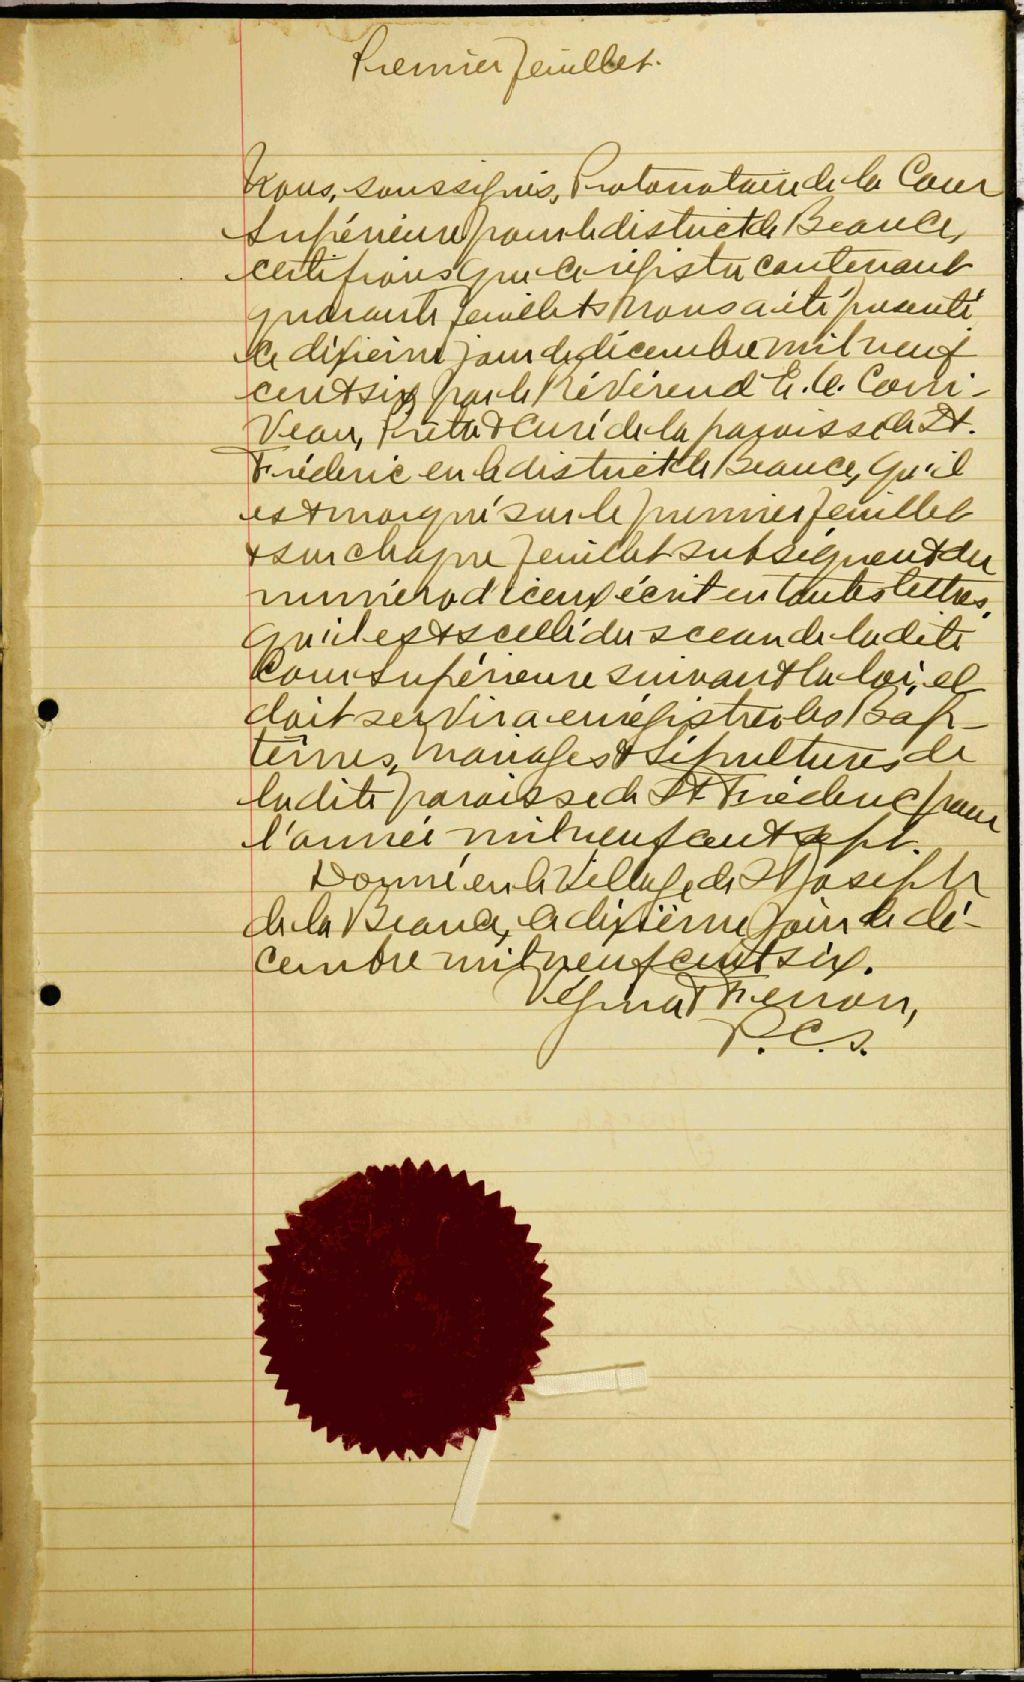 Premier feuillet.
Nous, soussignés, Protonotaire de la Cour
Supérieure pour le district de Beauce,
certifions que ce régistre contenant
quarante feuillets nous a été présenté
ce dixième jour de décembre mil neuf
cent six par le Révérend E. C. Corri-
veau, Prêtre & Curé de la paroisse de St.
Fréderic en le district de Beauce, qu'il
est marqué sur le premier feuillet
& sur chaque feuillet subséquent du
numéro d'iceux écrit en toutes lettres,
qu'il est scellé du sceau de la dite
Cour Supérieure suivant la loi, et
doit servir a enrégistrer les Bap-
têmes, Mariages & Sépultures de
la dite paroisse de St Fréderic pour
l'année mil neuf cent sept.
Donné en le Village de St Joseph
de la Beauce, ce dixième jour de dé-
cembre mil neuf cent six.
Vézina & Ferron,
P.C.S.